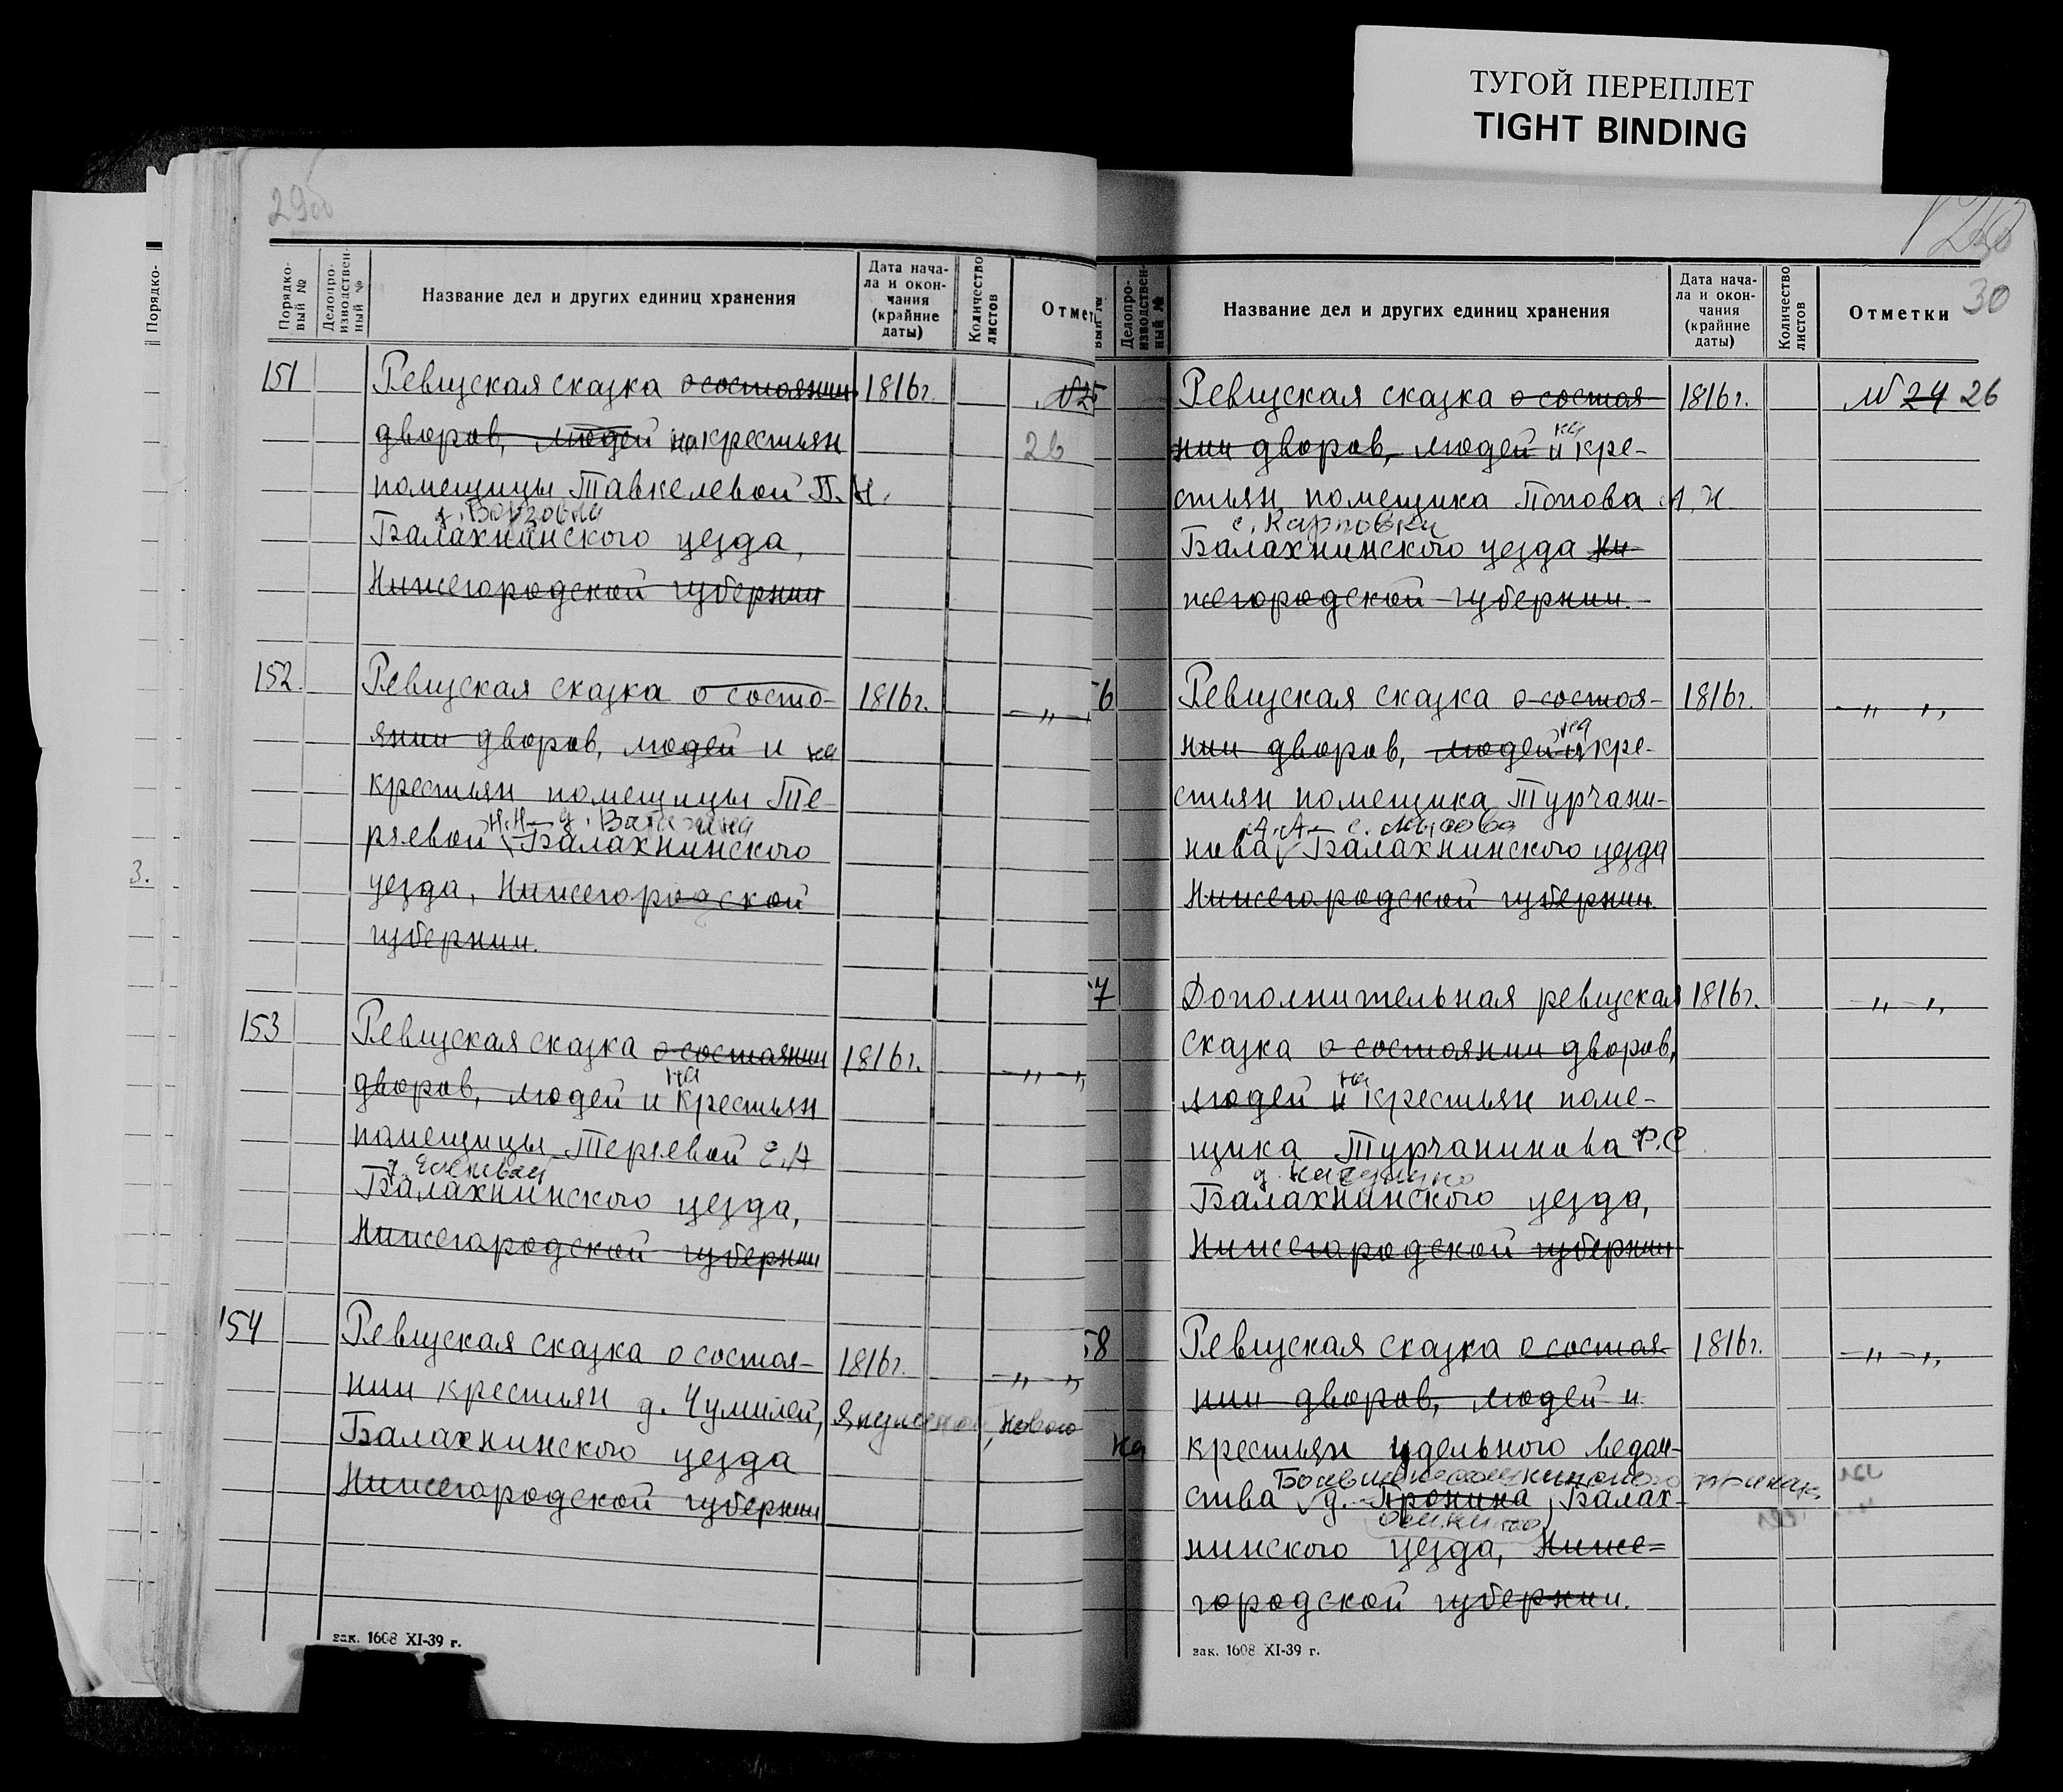 ТУГОЙ ПЕРЕПЛЕТ
TIGHT BINDING
29об
Порядко-
Порядко-
вый №
Делопро-
изводствен-
ный №
Название дел и других единиц хранения
Дата нача-
ла и окон-
чания
(крайние
даты)
Количество
листов
Отмет
3.
151 Ревизская сказка о состоянии 1816г. №25
дворов, людей на крестьян 26
помещицы Тавкелевой П. Н.
Балахнинского уезда,
Нижегородской губернии
152. Ревизская сказка о состо- 1816г. —„—
янии дворов, людей и на
крестьян помещицы Те-
Н.Н. д.
ряевой Балахнинского
уезда, Нижегородской
губернии.
153 Ревизская сказка о состоянии 1816г. —„—„
на
дворов, людей и крестьян
помещицы Теряевой Е.А
Балахнинского уезда,
Нижегородской губернии
154 Ревизская сказка о состоя- 1816г. —„—„
нии крестьян д. Чумилей, нового
Балахнинского уезда
Нижегородской губернии
зак. 1608 XI-39 г.
30
вый №
Делопро-
изводствен-
ный №
Название дел и других единиц хранения
Дата нача-
ла и окон-
чания
(крайние
даты)
Количество
листов
Отметки
Ревизская сказка о состоя- 1816г. № 24 26
на
нии дворов, людей и кре-
стьян помещика Попова А. Н.
с. Карповки
Балахнинского уезда Ни-
жегородской губернии.
6 Ревизская сказка о состоя- 1816г. —„—„
на
нии дворов, людей и кре-
стьян помещика Турчани-
А.А. с.
нова Балахнинского уезда
Нижегородской губернии.
7 Дополнительная ревизская 1816г. —„—„
сказка о состоянии дворов,
на
людей и крестьян поме-
щика Турчанинова Ф.С
Балахнинского уезда,
Нижегородской губернии
58 Ревизская сказка о состоя- 1816г. —„—„
нии дворов, людей и
на крестьян удельного ведом-
ства д. Пронина, Балах-
нинского уезда, Ниже-
городской губернии.
зак. 1608 XI-39 г.